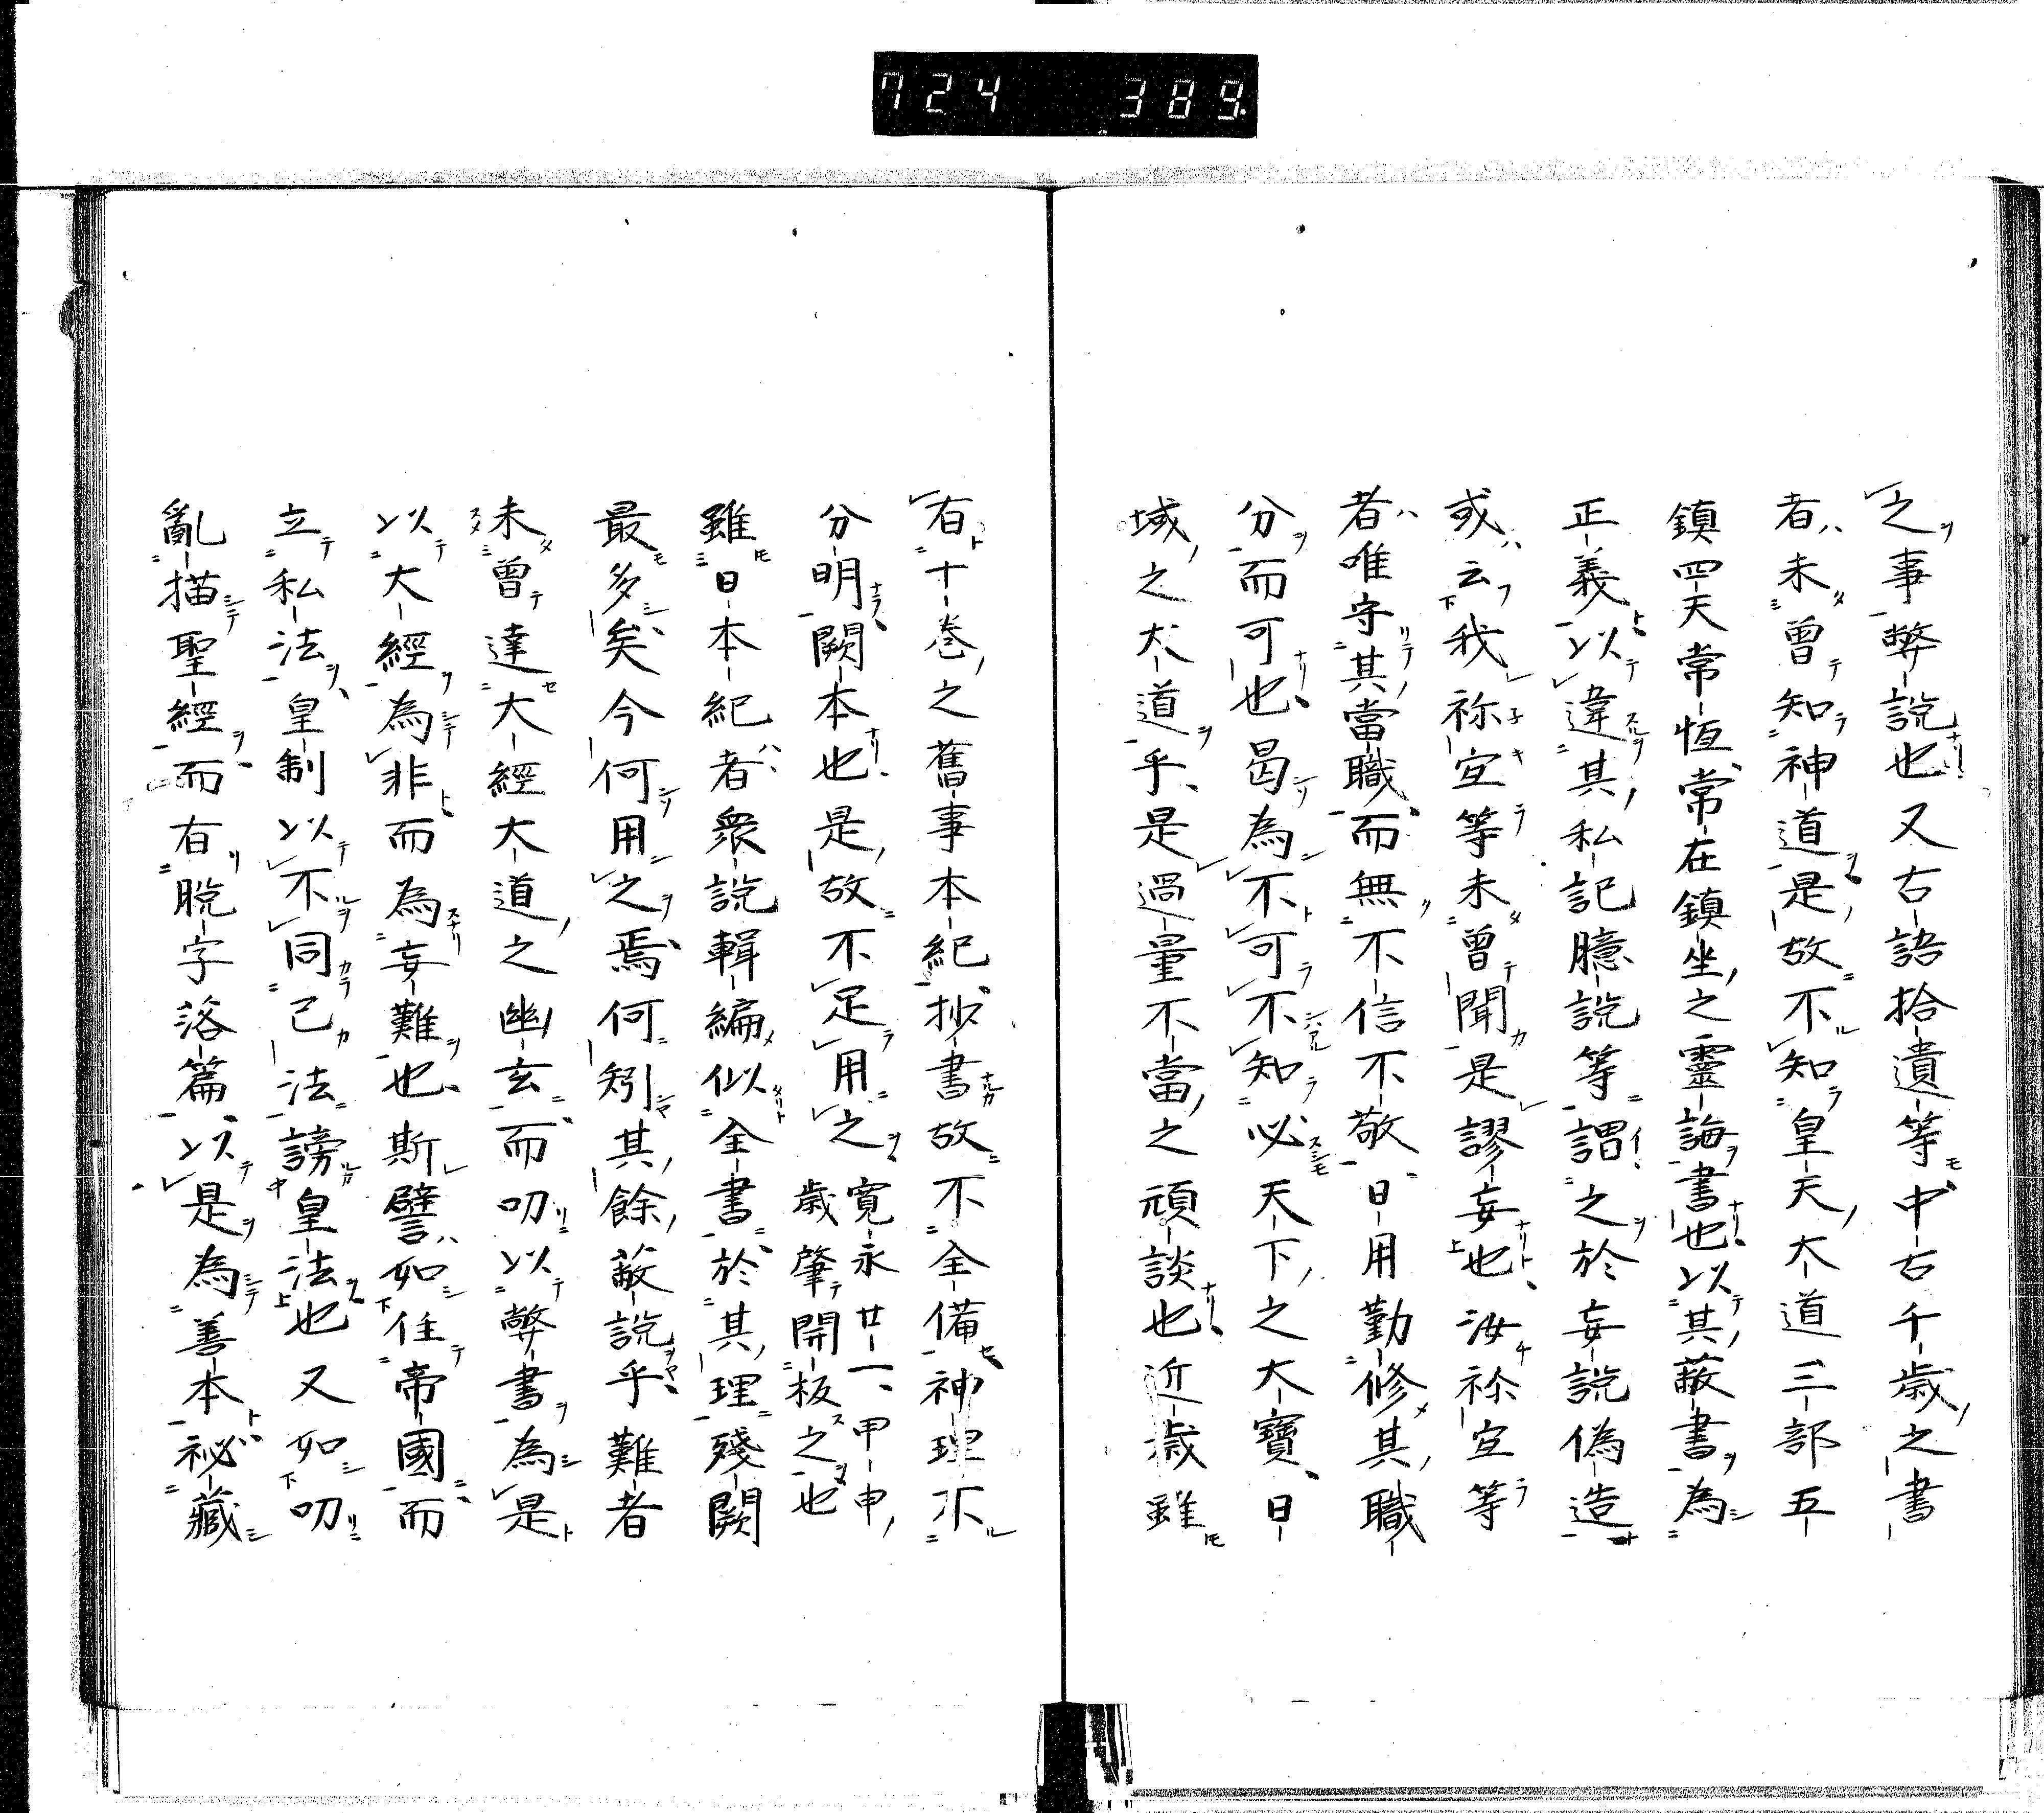 724 389
之事弊説也又古語拾遺等中古千歳之書
者未曾知神道是故不知皇天大道三部五
鎮四天常恆常在鎮坐之靈誨書也以其蔽書為
正義以違其私記臆説等謂之於妄説偽造
或云我祢宜等未曾聞是謬妄也汝祢宜等
者唯守其當職而無不信不敬日用勤修其職
分而可也曷為不可不知必天下之大寶日
域之大道乎是過量不當之頑談也近歳雖
有十巻之舊事本紀抄書故不全備神理不
分明闕本也是故不足用之寛永廿一甲申
歳肇開板之也
雖日本紀者衆説輯編似全書於其理殘闕
最多矣今何用之焉何矧其餘蔽説乎難者
未曾達大經大道之幽玄而叨以弊書為是
以大經為非而為妄難也斯譬如住帝國而
立私法皇制以不同己法謗皇法也又如叨
亂描聖經而有脱字落篇以是為善本祕藏